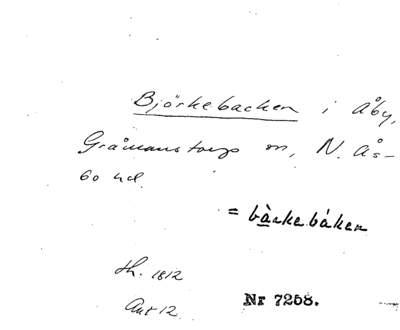 Björkebacken i Åby,
Gråmanstorps sn, N. Ås-
bo hd.
= bàrkebáken
th. 1812
Ant 12
Nr 7258.